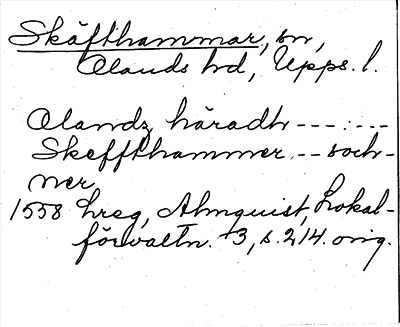 Skäfthammar, sn,
Olands hd, Upps. l.
Olandz häradh ---:---
Skeffthammer -- soch-
ner
1558 hreg, Almquist, Lokal-
förvaltn. +3, s. 214. orig.